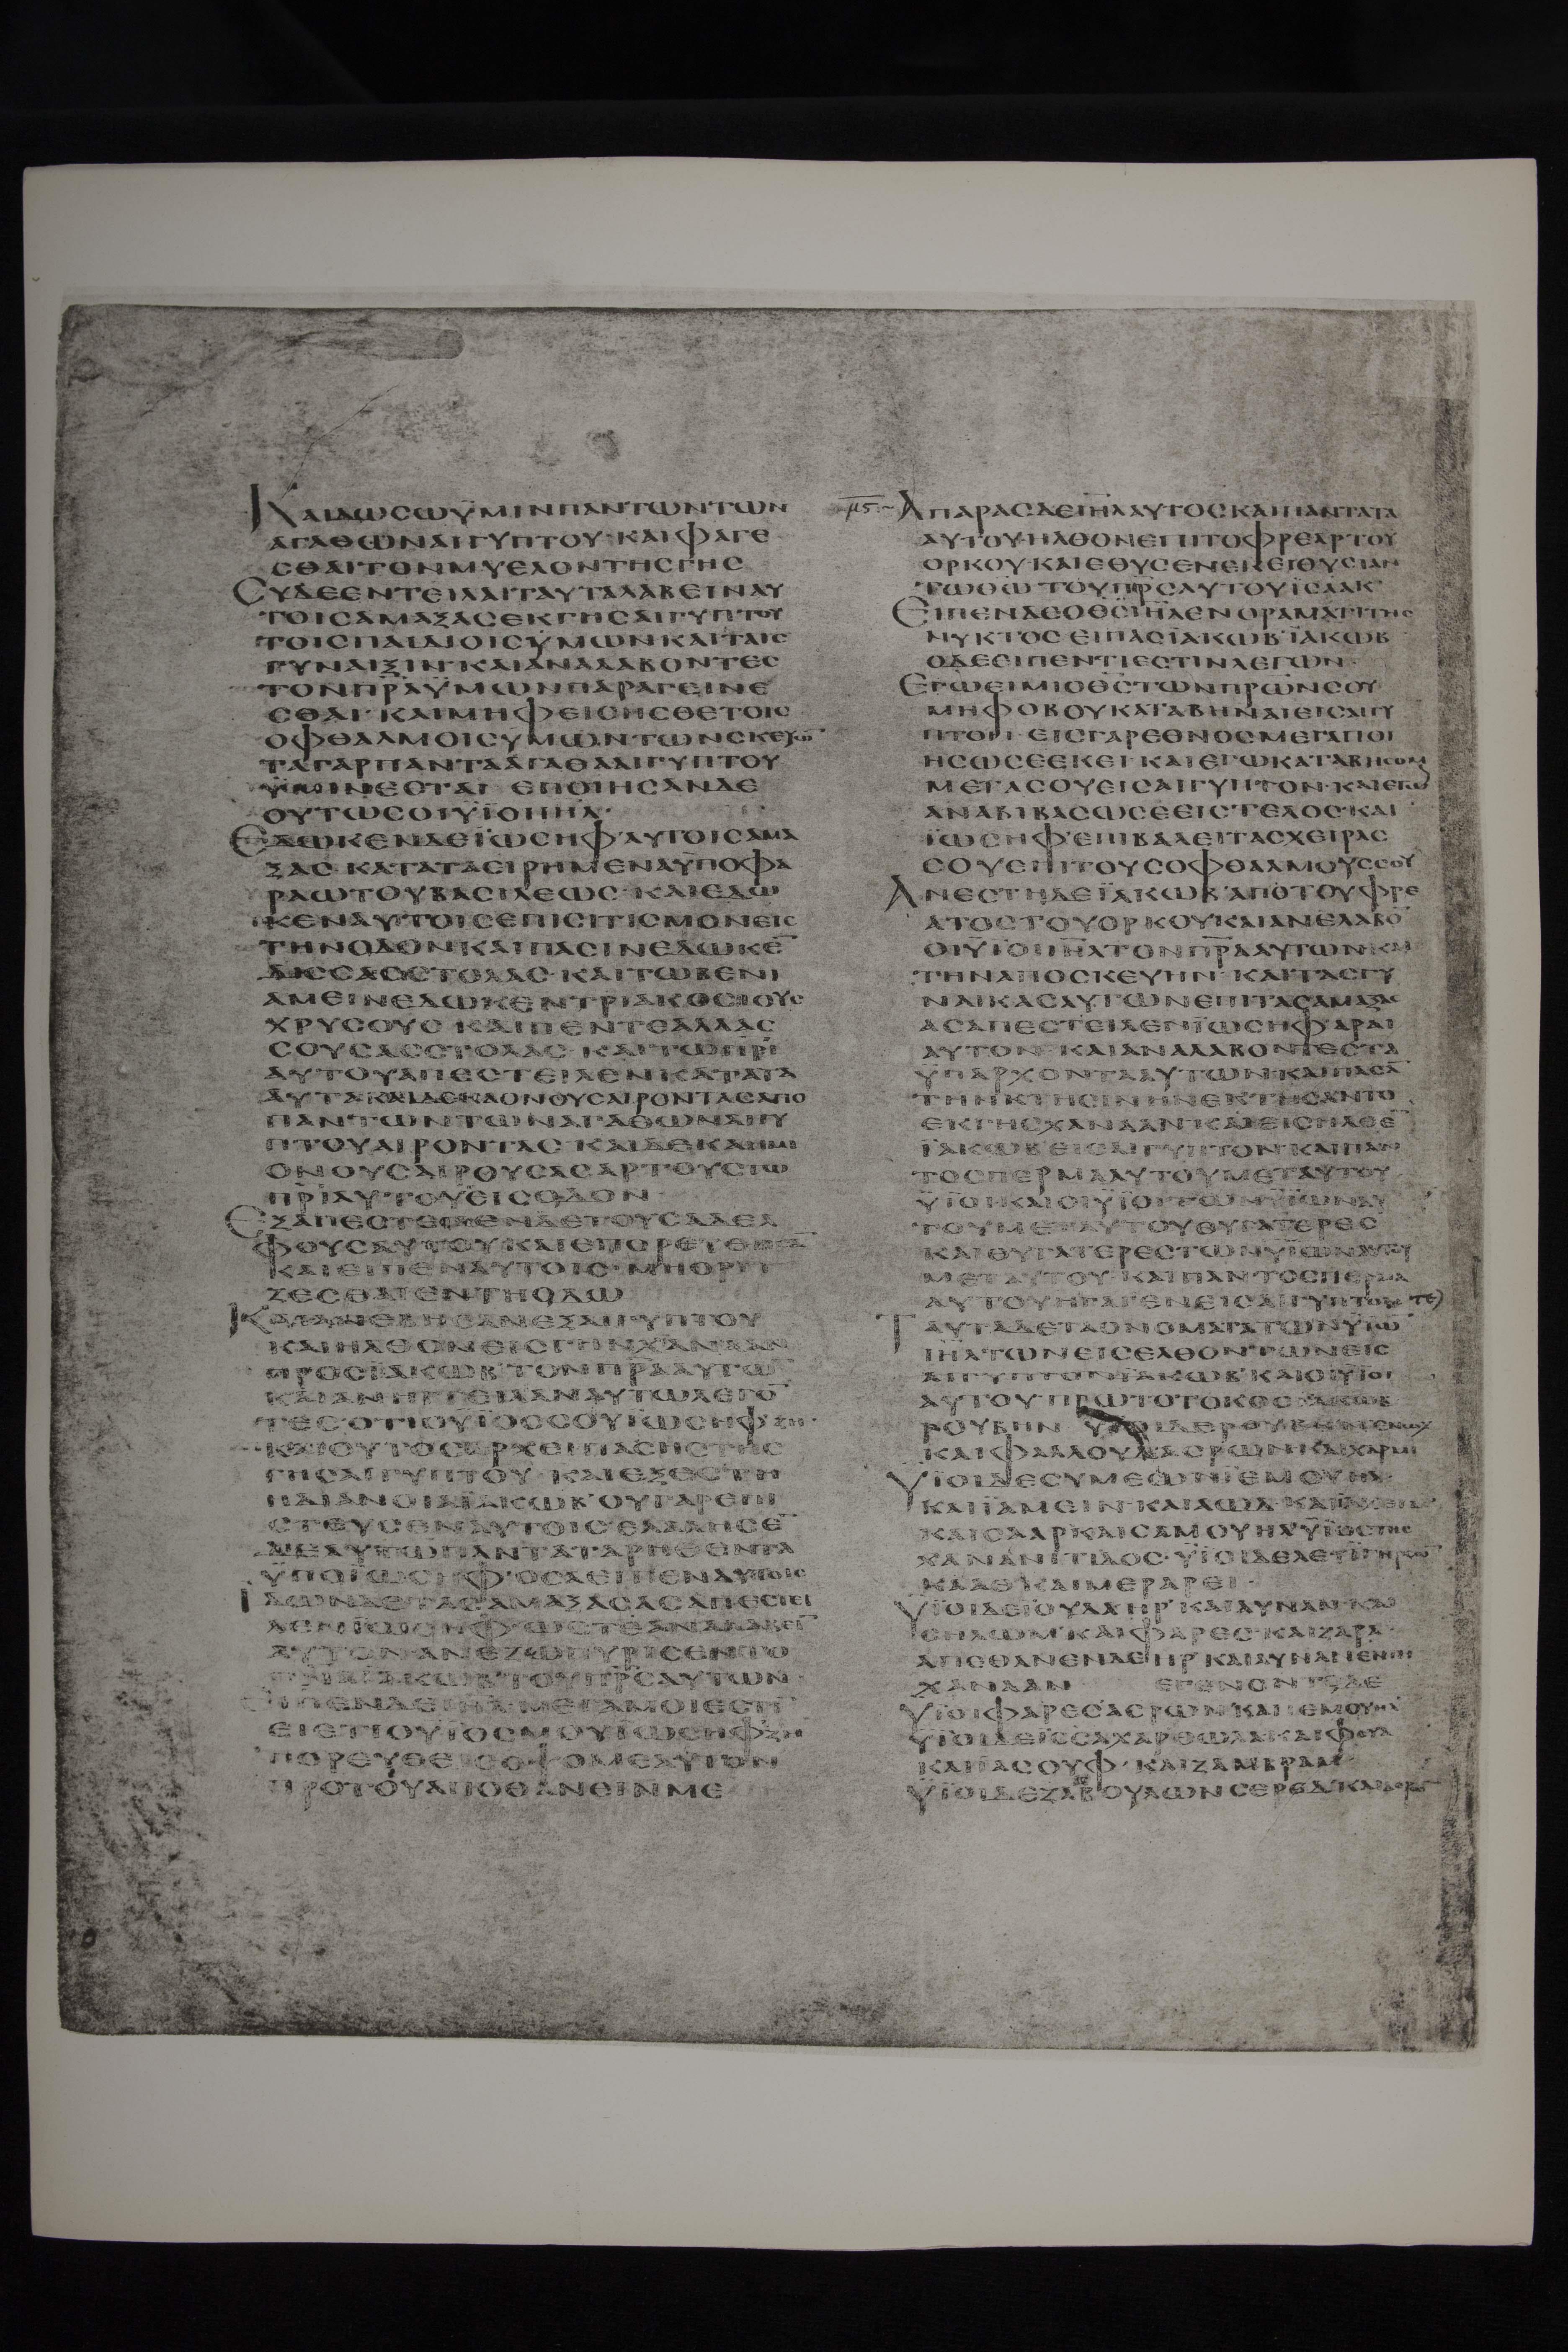 ΚΑΙΔΩΣΩΫΜΙΝΠΑΝΤΩΝΤΩΝ
ΑΓΑΘΩΝΑΙΓΥΠΤΟΥ·ΚΑΙΦΑΓΕ
ΣΘΑΙΤΟΝΜΥΕΛΟΝΤΗΣΓΗΣ
ΣΥΔΕΕΝΤΕΙΛΑΙΤΑΥΤΑΛΑΒΕΙΝΑΥ
ΤΟΙΣΑΜΑΞΑΣΕΚΓΗΣΑΙΓΥΠΤΟΥ
ΤΟΙΣΠΑΙΔΙΟΙΣΫΜΩΝΚΑΙΤΑΙΣ
ΓΥΝΑΙΞΙΝ·ΚΑΙΑΝΑΛΑΒΟΝΤΕΣ
ΤΟΝΠΡΑΫΜΩΝΠΑΡΑΓΕΙΝΕ
ΣΘΑΙ·ΚΑΙΜΗΦΕΙΣΗΣΘΕΤΟΙΣ
ΟΦΘΑΛΜΟΙΣΫΜΩΝΤΩΝΣΚΕΥΩ̅
ΤΑΓΑΡΠΑΝΤΑΑΓΑΘΑΑΙΓΥΠΤΟΥ
ΫΜΙΝΕΣΤΑΙ ΕΠΟΙΗΣΑΝΔΕ
ΟΥΤΩΣΟΙΫΪΟΙΙΗΛ·
ΕΔΩΚΕΝΔΕΪΩΣΗΦ·ΑΥΤΟΙΣΑΜΑ
ΞΑΣ·ΚΑΤΑΤΑΕΙΡΗΜΕΝΑΥΠΟΦΑ
ΡΑΩΤΟΥΒΑΣΙΛΕΩΣ·ΚΑΙΕΔΩ
ΚΕΝΑΥΤΟΙΣΕΠΙΣΙΤΙΣΜΟΝΕΙΣ
ΤΗΝΟΔΟΝ·ΚΑΙΠΑΣΙΝΕΔΩΚΕ̅
ΔΙΣΣΑΣΣΤΟΛΑΣ·ΚΑΙΤΩΒΕΝΙ
ΑΜΕΙΝΕΔΩΚΕΝΤΡΙΑΚΟΣΙΟΥΣ
ΧΡΥΣΟΥΣ·ΚΑΙΠΕΝΤΕΑΛΛΑΣ
ΣΟΥΣΑΣΣΤΟΛΑΣ·ΚΑΙΤΩΠΡΙ
ΑΥΤΟΥΑΠΕΣΤΕΙΛΕΝΚΑΤΑΤΑ
ΑΥΤΑΚΑΙΔΕΚΑΟΝΟΥΣΑΙΡΟΝΤΑΣΑΠΟ
ΠΑΝΤΩΝΤΩΝΑΓΑΘΩΝΑΙΓΥ
ΠΤΟΥΑΙΡΟΝΤΑΣ·ΚΑΙΔΕΚΑΗΜΙ
ΟΝΟΥΣΑΙΡΟΥΣΑΣΑΡΤΟΥΣΤΩ
ΠΡΙΑΥΤΟΥΕΙΣΟΔΟΝ·
ΕΞΑΠΕΣΤΕΙΛΕΝΔΕΤΟΥΣΑΔΕΛ
ΦΟΥΣΑΥΤΟΥ·ΚΑΙΕΠΟΡΕΥΘΗΣΑ̅
ΚΑΙΕΙΠΕΝΑΥΤΟΙΣ·ΜΗΟΡΓΙ
ΖΕΣΘΑΙΕΝΤΗΟΔΩ
ΚΑΙΑΝΕΒΗΣΑΝΕΞΑΙΓΥΠΤΟΥ
ΚΑΙΗΛΘΟΝΕΙΣΓΗΝΧΑΝΑΑΝ
ΠΡΟΣΪΑΚΩΒ·ΤΟΝΠΡΑΑΥΤΩ̅
ΚΑΙΑΝΗΓΓΕΙΛΑΝΑΥΤΩΛΕΓΟ̅
ΤΕΣ·ΟΤΙΟΥΪΟΣΣΟΥΪΩΣΗΦΖΗ·
ΚΑΙΟΥΤΟΣΑΡΧΕΙΠΑΣΗΣΤΗΣ
ΓΗΣΑΙΓΥΠΤΟΥ·ΚΑΙΕΞΕΣΤΗ
ΔΙΑΝΟΙΑΪΑΚΩΒ·ΟΥΓΑΡΕΠΙ
ΣΤΕΥΣΕΝΑΥΤΟΙΣ·ΕΛΑΛΗΣΕ̅
ΔΕΑΥΤΩΠΑΝΤΑΤΑΡΗΘΕΝΤΑ
ΥΠΟΪΩΣΗΦ·ΟΣΑΕΙΠΕΝΑΥΤΟΙΣ
ΙΔΩΝΔΕΤΑΣΑΜΑΞΑΣΑΣΑΠΕΣΤΕΙ
ΛΕΝΪΩΣΗΦ·ΩΣΤΕΑΝΑΛΑΒΕΙ̅
ΑΥΤΟΝ·ΑΝΕΖΩΠΥΡΙΣΕΝΤΟ
ΠΝΑΪΑΚΩΒ·ΤΟΥΠΡΣΑΥΤΩΝ
ΕΙΠΕΝΔΕΙΗΛ·ΜΕΓΑΜΟΙΕΣΤΙ̅
ΕΙΕΤΙΟΥΪΟΣΜΟΥΪΩΣΗΦΖΗ
ΠΟΡΕΥΘΕΙΣΟΨΟΜΑΙΑΥΤΟΝ
ΠΡΟΤΟΥΑΠΟΘΑΝΕΙΝΜΕ
μϛ
ΑΠΑΡΑΣΔΕΙΗΛΑΥΤΟΣΚΑΙΠΑΝΤΑΤΑ
ΑΥΤΟΥ·ΗΛΘΟΝΕΠΙΤΟΦΡΕΑΡΤΟΥ
ΟΡΚΟΥ·ΚΑΙΕΘΥΣΕΝΕΚΕΙΘΥΣΙΑΝ
ΤΩΘΩ·ΤΟΥΠΡΣΑΥΤΟΥΪΣΑΑΚ
ΕΙΠΕΝΔΕΟΘΣΙΗΛΕΝΟΡΑΜΑΤΙΤΗΣ
ΝΥΚΤΟΣ·ΕΙΠΑΣΪΑΚΩΒ·ΪΑΚΩΒ
ΟΔΕΕΙΠΕΝΤΙΕΣΤΙΝΛΕΓΩΝ·
ΕΓΩΕΙΜΙΟΘΣΤΩΝΠΡΩΝΣΟΥ
ΜΗΦΟΒΟΥΚΑΤΑΒΗΝΑΙΕΙΣΑΙΓΥ
ΠΤΟΝ·ΕΙΣΓΑΡΕΘΝΟΣΜΕΓΑΠΟΙ
ΗΣΩΣΕΕΚΕΙ·ΚΑΙΕΓΩΚΑΤΑΒΗΣΟΜΑΙ
ΜΕΤΑΣΟΥΕΙΣΑΙΓΥΠΤΟΝ·ΚΑΙΕΓΩ
ΑΝΑΒΙΒΑΣΩΣΕΕΙΣΤΕΛΟΣ·ΚΑΙ
ΪΩΣΗΦ·ΕΠΙΒΑΛΕΙΤΑΣΧΕΙΡΑΣ
ΣΟΥΕΠΙΤΟΥΣΟΦΘΑΛΜΟΥΣΣΟΥ
ΑΝΕΣΤΗΔΕΪΑΚΩΒ·ΑΠΟΤΟΥΦΡΕ
ΑΤΟΣΤΟΥΟΡΚΟΥ·ΚΑΙΑΝΕΛΑΒΟ̅
ΟΙΥΪΟΙΙΗΛΤΟΝΠΡΑΑΥΤΩΝ·ΚΑΙ
ΤΗΝΑΠΟΣΚΕΥΗΝ·ΚΑΙΤΑΣΓΥ
ΝΑΙΚΑΣΑΥΤΩΝΕΠΙΤΑΣΑΜΑΞΑΣ
ΑΣΑΠΕΣΤΕΙΛΕΝΪΩΣΗΦ·ΑΡΑΙ
ΑΥΤΟΝ·ΚΑΙΑΝΑΛΑΒΟΝΤΕΣΤΑ
ΫΠΑΡΧΟΝΤΑΑΥΤΩΝ·ΚΑΙΠΑΣΑ̅
ΤΗΝΚΤΗΣΙΝΗΝΕΚΤΗΣΑΝΤΟ
ΕΚΓΗΣΧΑΝΑΑΝ·ΚΑΙΕΙΣΗΛΘΕ̅
ΪΑΚΩΒ·ΕΙΣΑΙΓΥΠΤΟΝ·ΚΑΙΠΑΝ
ΤΟΣΠΕΡΜΑΑΥΤΟΥΜΕΤΑΥΤΟΥ
ΫΪΟΙΚΑΙΟΙΫΪΟΙΤΩΝΫΪΩΝΑΥ
ΤΟΥΜΕΤΑΥΤΟΥ·ΘΥΓΑΤΕΡΕΣ
ΚΑΙΘΥΓΑΤΕΡΕΣΤΩΝΫΪΩΝΑΥΤΟΥ
ΜΕΤΑΥΤΟΥ·ΚΑΙΠΑΝΤΟΣΠΕΡΜΑ
ΑΥΤΟΥΗΓΑΓΕΝΕΙΣΑΙΓΥΠΤΟΝ
ΤΑΥΤΑΔΕΤΑΟΝΟΜΑΤΑΤΩΝΥΪΩ̅
ΙΗΛΤΩΝΕΙΣΕΛΘΟΝΤΩΝΕΙΣ
ΑΙΓΥΠΤΟΝ·ΪΑΚΩΒ·ΚΑΙΟΙΥΪΟΙ
ΑΥΤΟΥ·ΠΡΩΤΟΤΟΚΟΣ·ΪΑΚΩΒ
ΡΟΥΒΗΝ ΥΪΟΙΔΕΡΟΥΒΗΝΕΝΩΧ
ΚΑΙΦΑΛΛΟΥΔΑΣΡΩΝΚΑΙΧΑΡΜΙ
ΥΪΟΙΔΕΣΥΜΕΩΝΪΕΜΟΥΗΛ
ΚΑΙΪΑΜΕΙΝ·ΚΑΙΑΩΔ·ΚΑΙ
ΚΑΙΣΑΑΡ·ΚΑΙΣΑΜΟΥΗΛ·ΫΪΟΣΤΗΣ
ΧΑΝΑΝΙΤΙΔΟΣ·ΫΪΟΙΔΕΛΕΥΪΓΗΡΣΩ̅
ΚΑΑΘ·ΚΑΙΜΕΡΑΡΕΙ·
ΥΪΟΙΔΕΪΟΥΔΑΗΡ·ΚΑΙΑΥΝΑΝ·ΚΑΙ
ΣΗΛΩΜ·ΚΑΙΦΑΡΕΣ·ΚΑΙΖΑΡΑ·
ΑΠΕΘΑΝΕΝΔΕΗΡ·ΚΑΙΑΥΝΑΝΕΝΓΗ
ΧΑΝΑΑΝ ΕΓΕΝΟΝΤΟΔΕ
ΥΪΟΙΦΑΡΕΣ·ΑΣΡΩΝ·ΚΑΙΪΕΜΟΥΗΛ
ΥΪΟΙΔΕΪΣΣΑΧΑΡ·ΘΩΛΑ·ΚΑΙΦΟΥΑ
ΚΑΙΪΑΣΟΥΦ·ΚΑΙΖΑΜΒΡΑΜ·
ΥΪΟΙΔΕΖΑΒΟΥΛΩΝΣΕΡΕΔ·ΚΑΙ